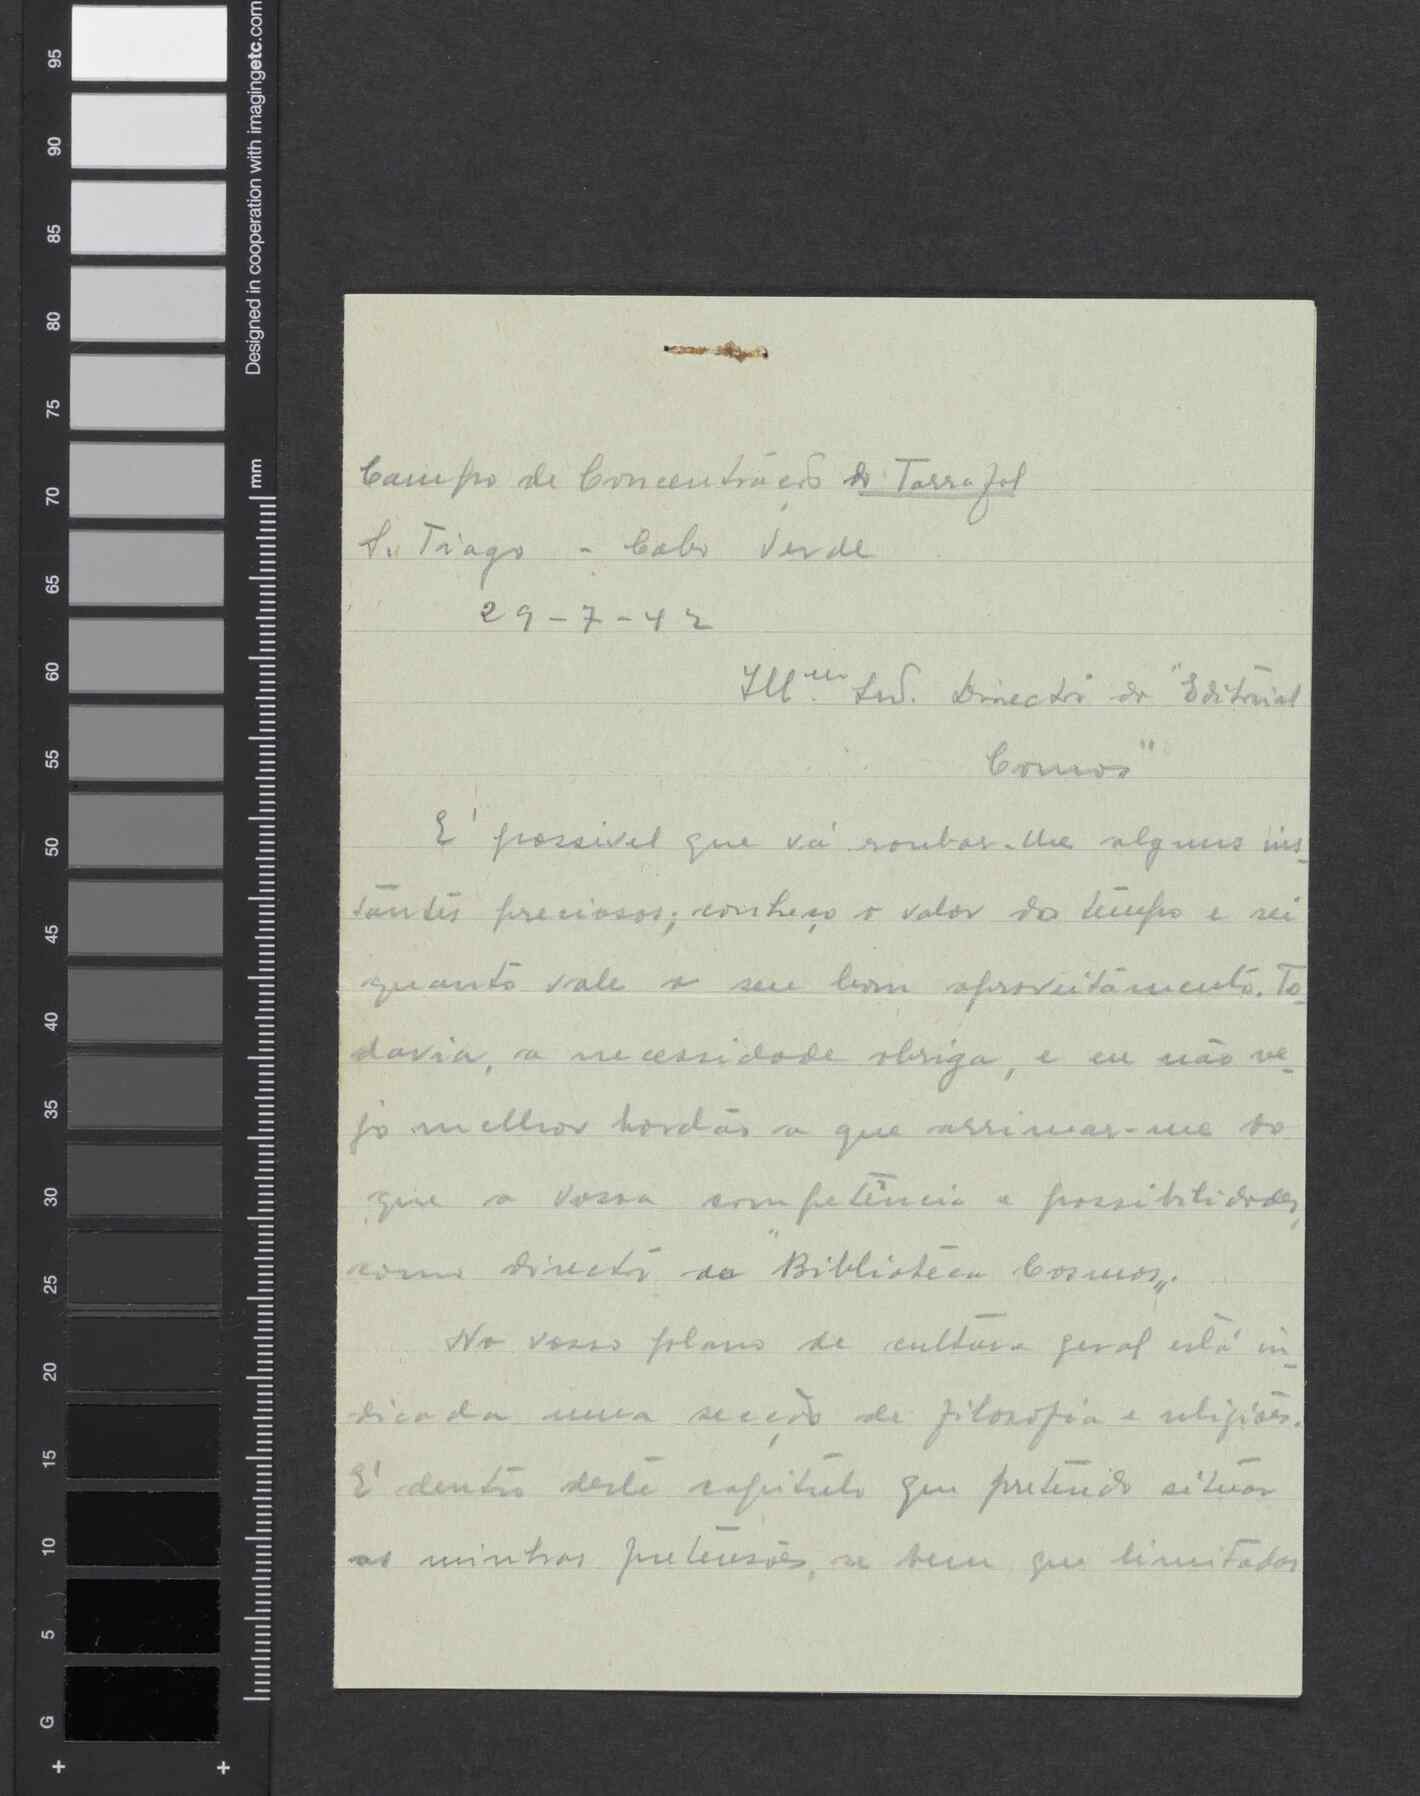 95
90
85
80
75
70
65
60
55
50
45
40
35
30
25
20
15
10
5
G
Designed in cooperation with imagingetc.com
mm
Campo de Concentração do Tarrafal
S. Tiago - Cabo Verde
29-7-42
Ill.mo Snr. Director da "Editorial
Cosmos"
E' possivel que vá roubar-lhe alguns ins-
tantes preciosos; conheço o valor do tempo e sei
quanto vale o seu bom aproveitamento. To-
davia, a necessidade obriga, e eu não ve-
jo melhor bordão a que arrimar-me do
que a vossa competência e possibilidades,
como director da "Biblioteca Cosmos".
No vosso plano de cultura geral está in-
dicada uma secção de filosofia e religiões.
E' dentro deste capitulo que pretendo situar
as minhas pretensões, se bem que limitadas